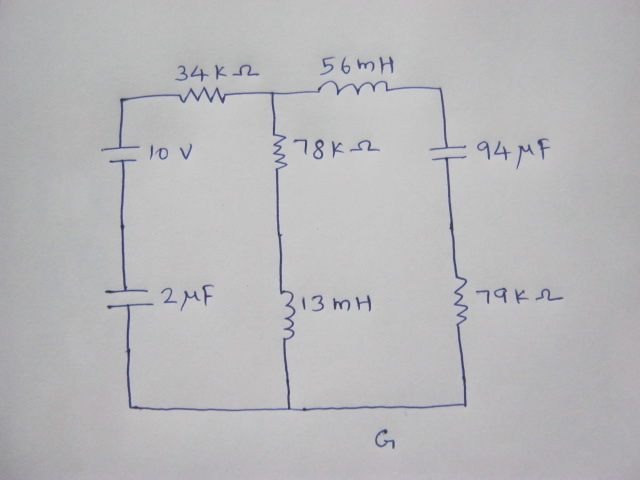 34KΩ 56mH
10 V 78KΩ 94μF
2μF 13mH 79KΩ
G